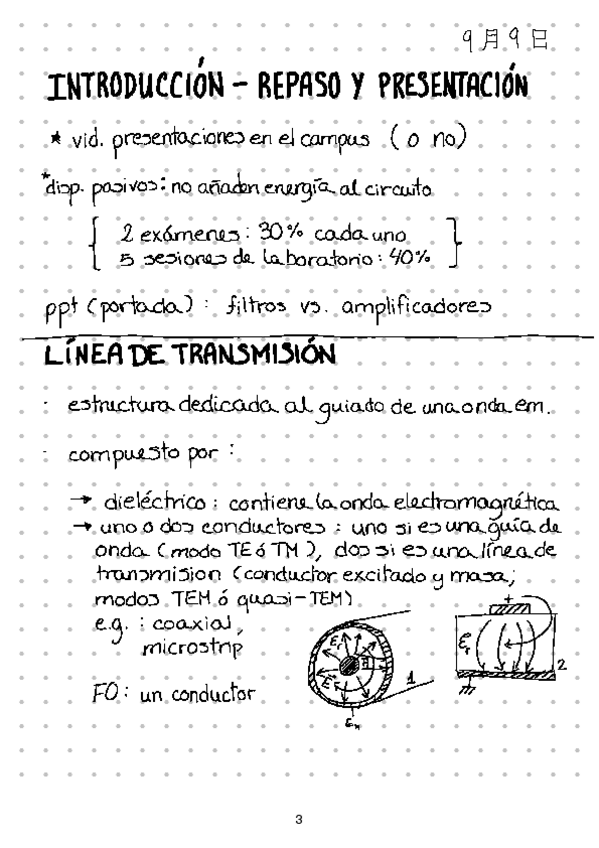 9月9日
INTRODUCCIÓN - REPASO Y PRESENTACIÓN
* vid. presentaciones en el campus (o no)
*disp. pasivos: no añaden energía al circuito
2 exámenes: 30% cada uno
5 sesiones de laboratorio: 40%
ppt (portada): filtros vs. amplificadores
LÍNEA DE TRANSMISIÓN
· estructura dedicada al guiado de una onda em.
· compuesto por:
→ dieléctrico: contiene la onda electromagnética
→ uno o dos conductores: uno si es una guía de
onda (modo TE ó TM), dos si es una línea de
transmision (conductor excitado y masa;
modos TEM ó quasi-TEM)
e.g.: coaxial,
microstrip
FO: un conductor
1
+
2
3